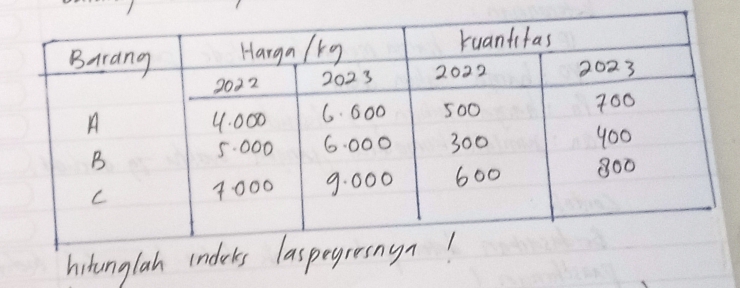 Barang Harga/kg Kuantitas
2022 2023 2022 2023
A 4.000 6.000 500 700
B 5.000 6.000 300 400
C 7.000 9.000 600 800
hitunglah indeks laspeyresnya !